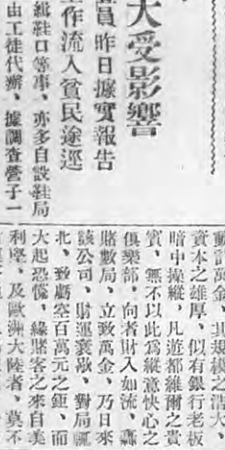 大受影響
員昨日據實報告
工作流入貧民途巡
緝鞋口等事、亦多自設鞋局
由工徒代辦、據調查營子一
動計萬金、其規模之浩大、
資本之雄厚、似有銀行老板
暗中操縱、凡遊都維爾之貴
賓、無不以此爲縱意快心之
俱樂部、向者財入如流、轟
賭數局、立致萬金、乃日來
該公司、財運衰歇、對局輒
北、致虧空百萬元之鉅、而
大起恐慌、緣賭客之來自美
利堅、及歐洲大陸者、莫不